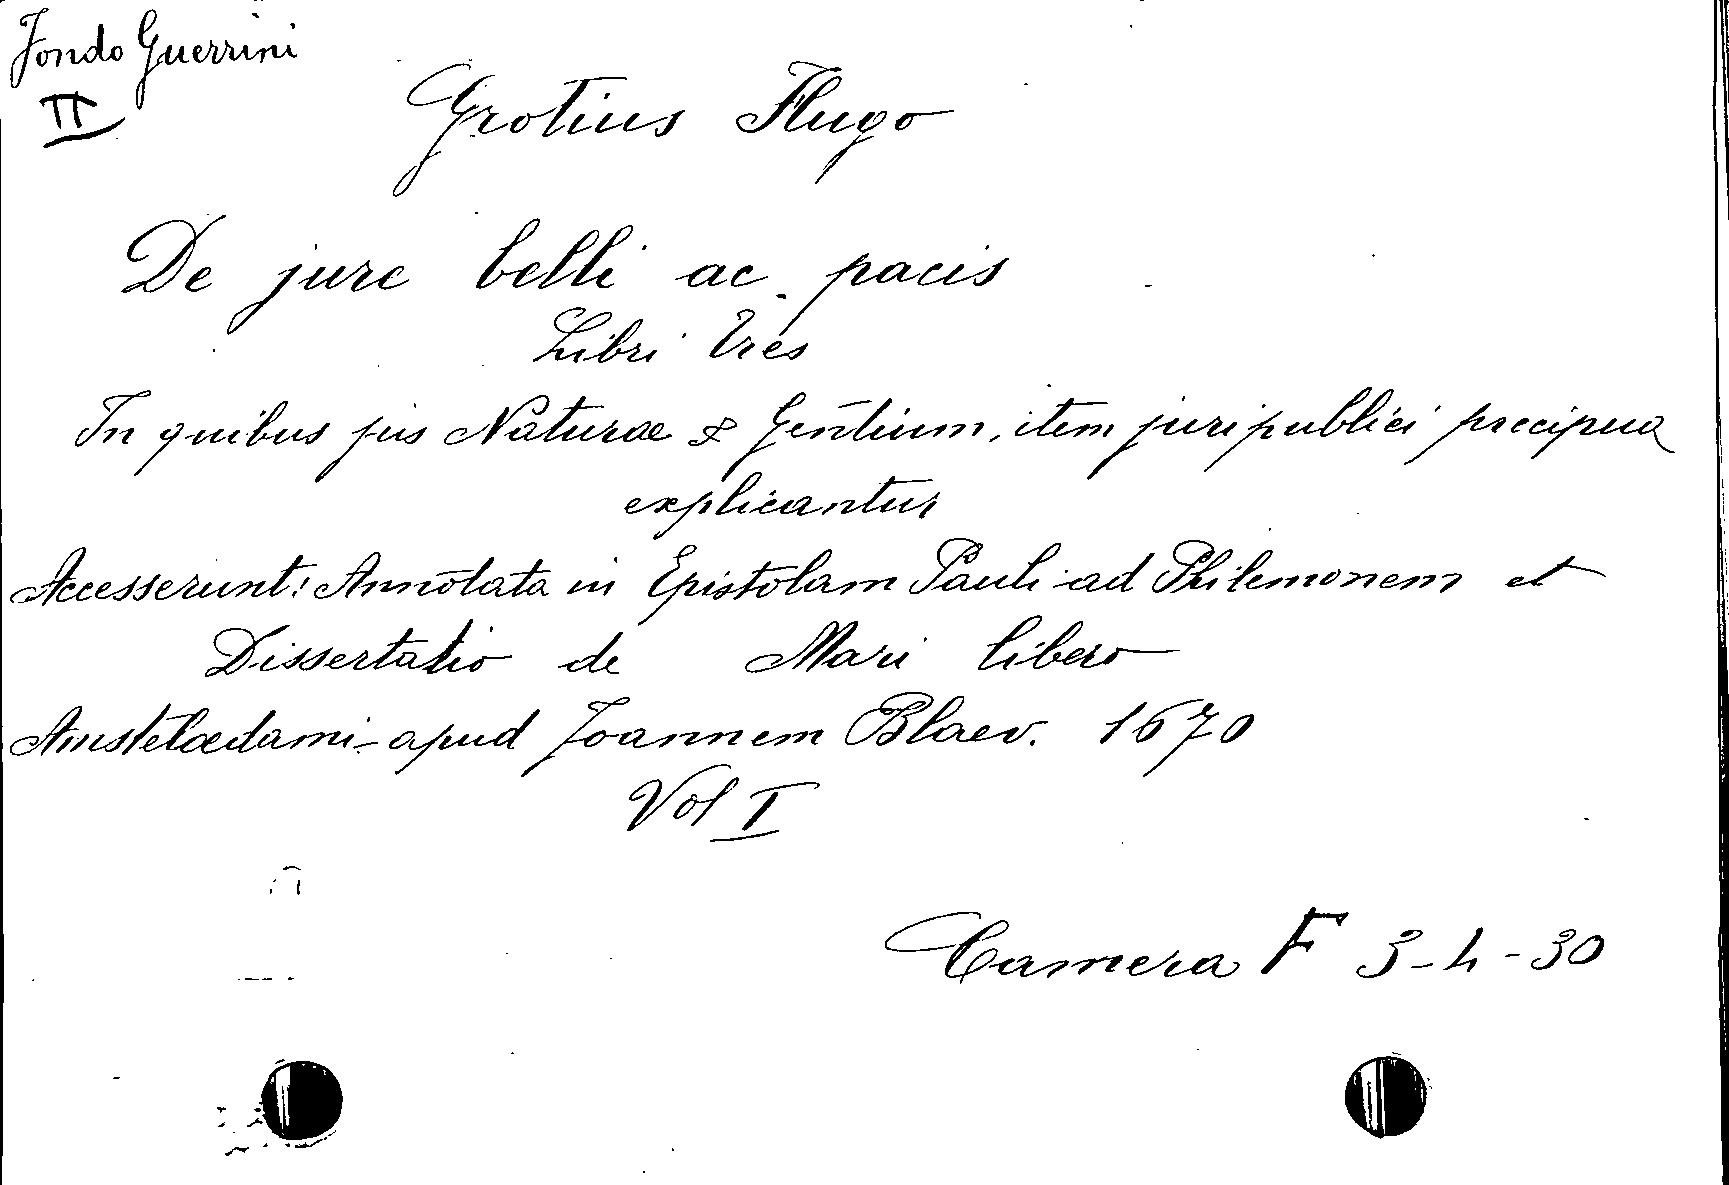 Fondo Guerrini
II
Grotius Hugo
De jure belli ac pacis
Libri tres
In quibus jus Naturae & Gentium, item juri publici precipua
explicantur
Accesserunt: Annotata in Epistolam Pauli ad Philemonem et
Dissertatio de Mari libero
Amsteloedami - apud Joannem Blaev. 1670
Vol I
Camera F 3-4-30